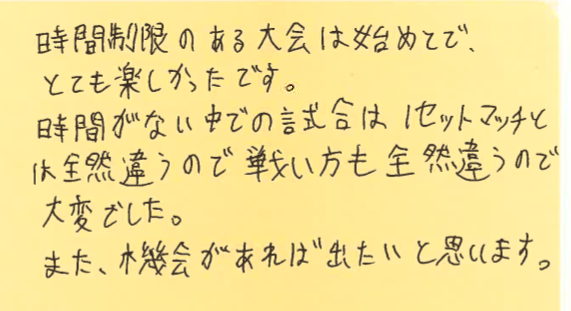 時間制限のある大会は始めてで、
とても楽しかったです。
時間がない中での試合は1セットマッチと
は全然違うので戦い方も全然違うので
大変でした。
また、機会があれば出たいと思います。